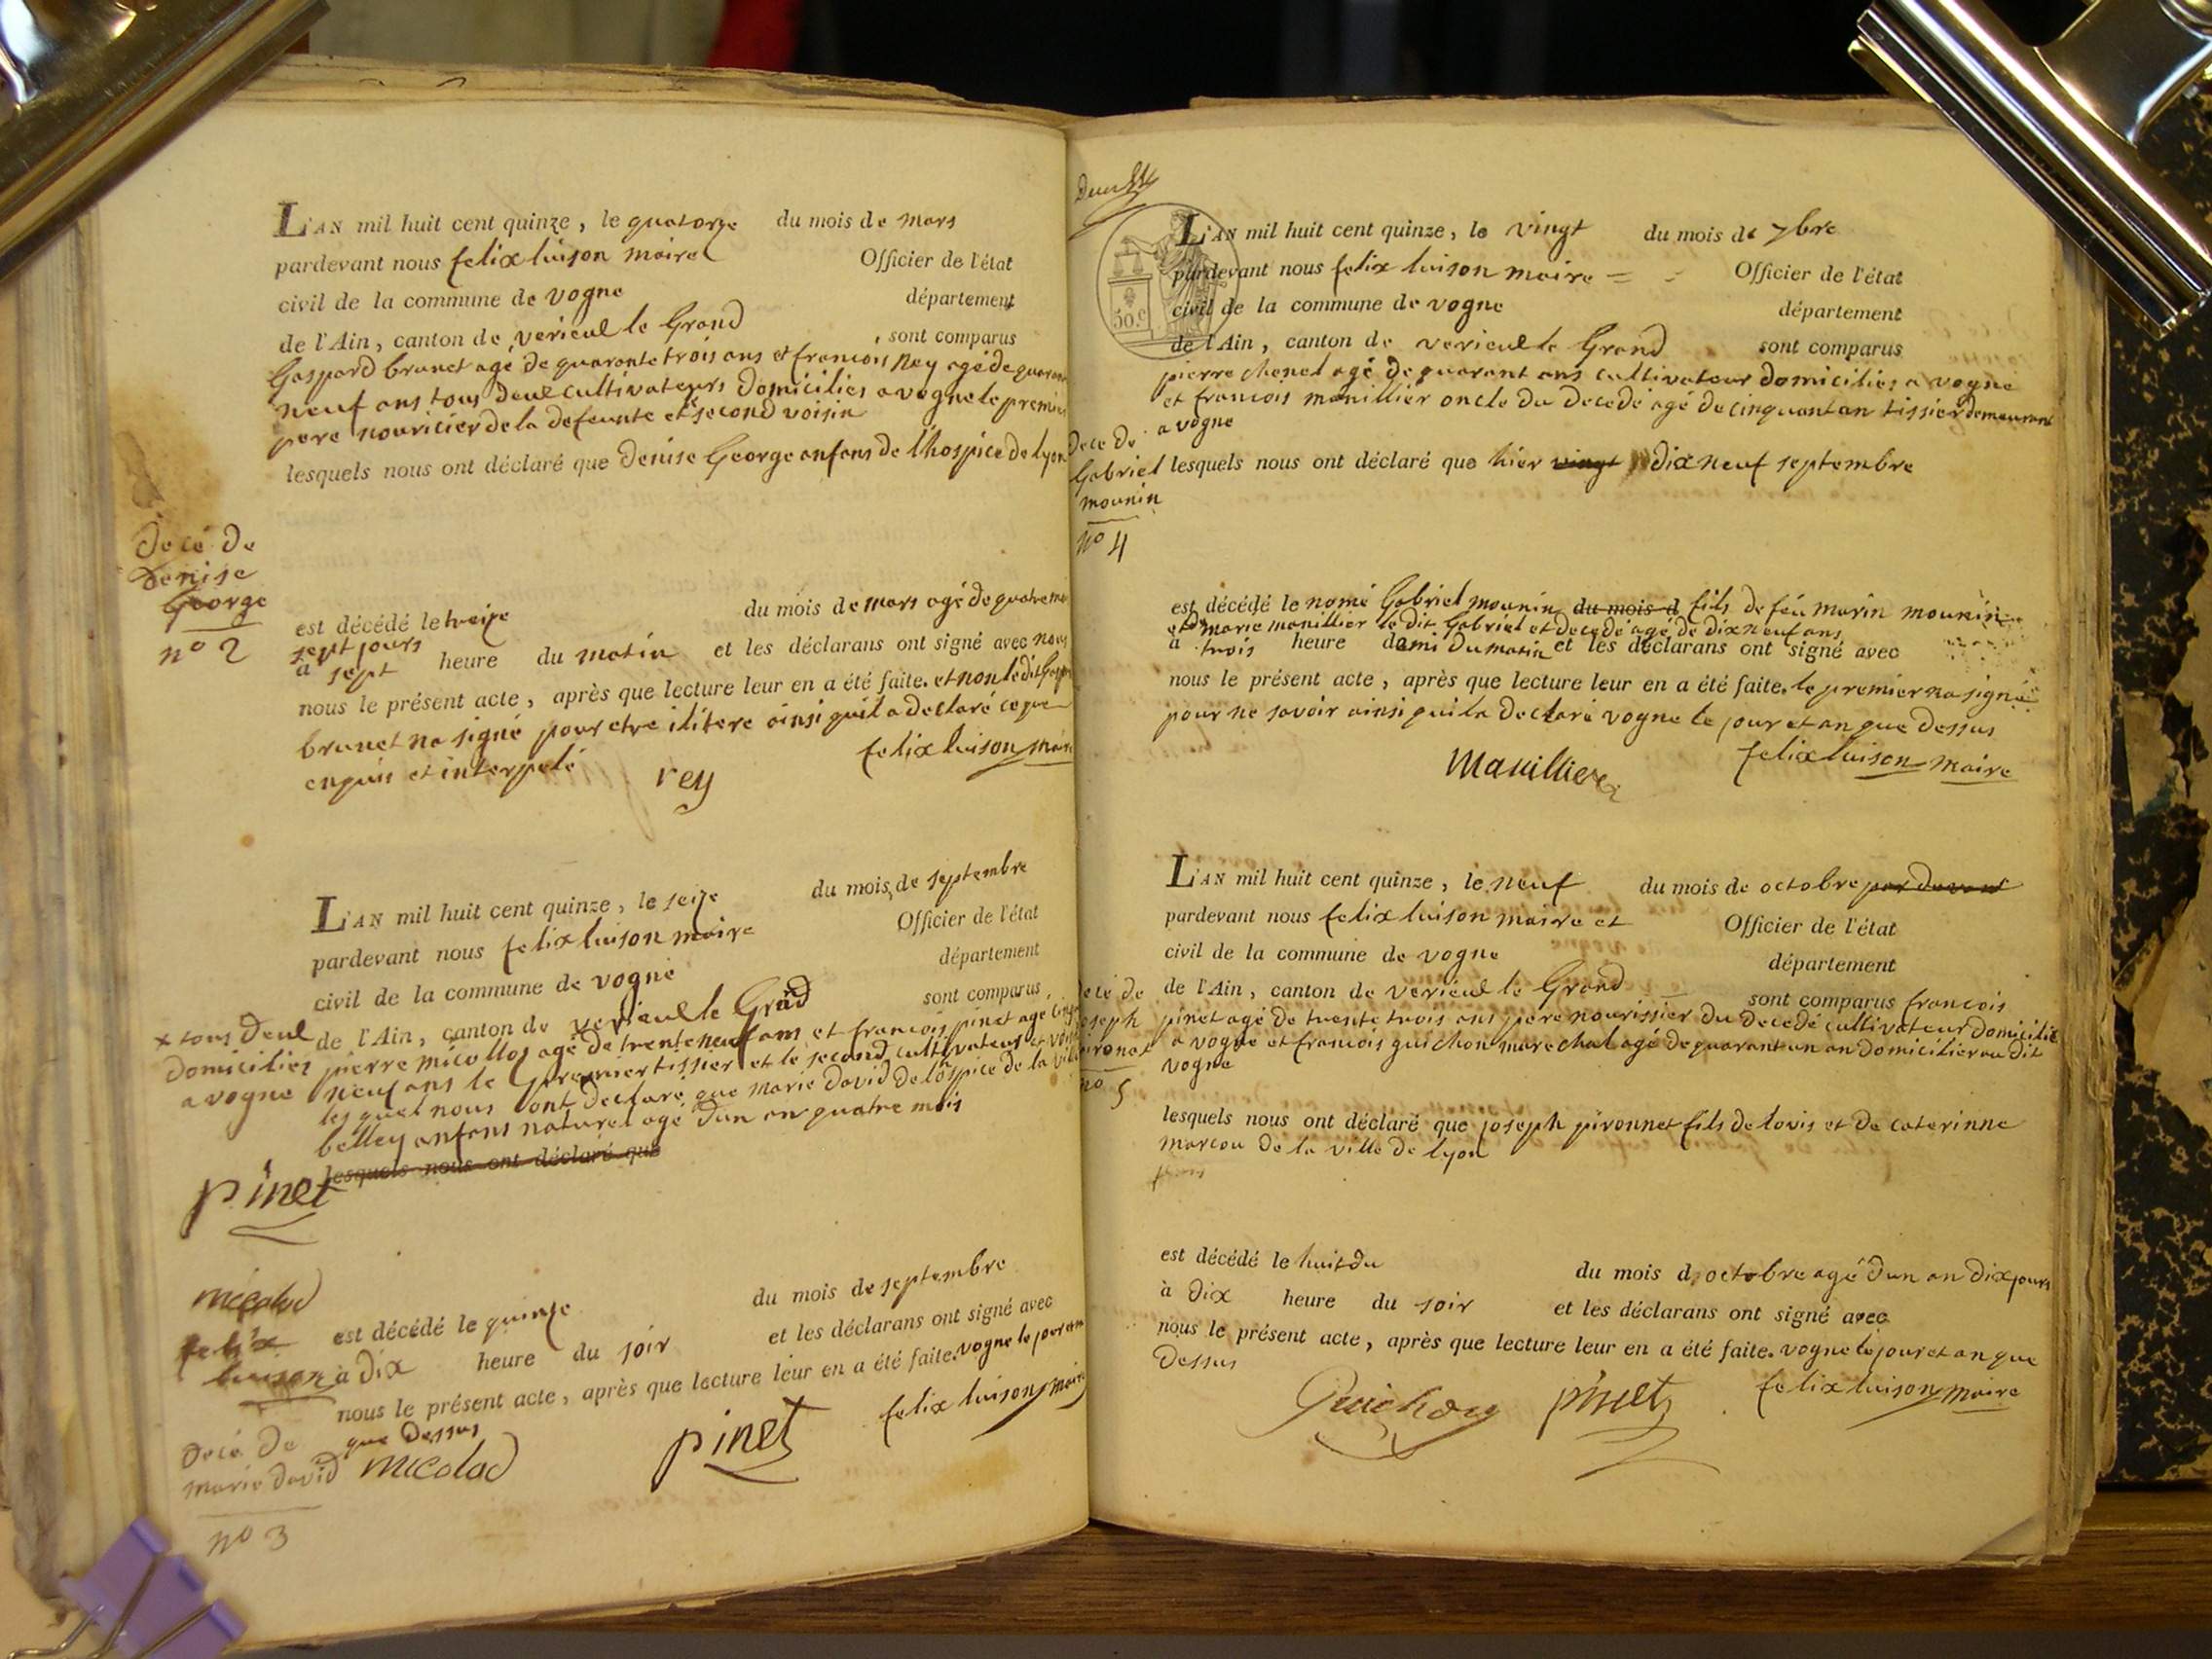 L'AN mil huit cent quinze, le quatorze du mois de mars
pardevant nous felix luison maire Officier de l'état
civil de la commune de vogne département
de l'Ain, canton de verieul le Grand , sont comparus
Gaspard brunet agé de quarante trois ans et francois Rey agé de quarante
neuf ans tous deul cultivateurs domiciliés a vogne le premier
pere nouricier de la defeunte et le second voisin
lesquels nous ont déclaré que denise George anfans de l'hospice de lyon
décé de
denise
George
no 2
est décédé le treize du mois de mars agé de quatre
sept jours
à sept heure du matin et les déclarans ont signé avec nous
nous le présent acte, après que lecture leur en a été faite. et non le dit
brunet na signé pour etre ilitere ainsi quil a declaré ce
enquis et interpelé rey felix luison maire
L'AN mil huit cent quinze, le seize du mois de septembre
pardevant nous felix luison maire Officier de l'état
civil de la commune de vogne département
de l'Ain, canton de verieul le Grad sont comparus,
x tous deul
domiciliés
a vogne
pierre micollos agé de trente neuf ans et francois pinet agé
neuf ans le premier tissier et le second cultivateur
lesquel nous ont declaré que marie david de lospice de la
belley anfans naturel agé dun an quatre mois
lesquels nous ont déclaré que
pinet
micolod
felix
luison
est décédé le quinze du mois de septembre
à dix heure du soir et les déclarans ont signé avec
nous le présent acte, après que lecture leur en a été faite. vogne le jour
que dessus
micolod pinet felix luison maire
décé de
marie david
no 3
L'AN mil huit cent quinze, le vingt du mois de 7bre
pardevant nous felix luison maire = = Officier de l'état
civil de la commune de vogne département
50.c
de l'Ain, canton de verieul le Grand sont comparus
pierre chenel agé de quarant ans cultivateur domiciliés a vogne
et francois manillier oncle du decedé agé de cinquant an tissier demeurant
a vogne
dece de
Gabriel
mounin
no 4
lesquels nous ont déclaré que hier vingt dix neuf septembre
est décédé le nomé Gabriel mounin du mois d fils de féu marin mounin
et de marie manillier le dit Gabriel et decedé agé de dix neuf ans
à trois heure demi du matin et les déclarans ont signé avec
nous le présent acte, après que lecture leur en a été faite. le premier na signé
pour ne savoir ainsi quila declaré vogne le jour et an que dessus
Manillier felix luison maire
L'AN mil huit cent quinze, le neuf du mois de octobre par devant
pardevant nous felix luison maire et Officier de l'état
civil de la commune de vogne département
de l'Ain, canton de verieul le Grand sont comparus francois
pinet agé de trente trois ans pere nourissier du decedé cultivateur domicilié
a vogne et francois guichon marechal agé de quarant un an domicilier au dit
vogne
no 5
lesquels nous ont déclaré que joseph pironnet fils de lovis et de caterinne
marcou de la ville de lyon
est décédé le huit du du mois d octobre agé dun an dix jours
à dix heure du soir et les déclarans ont signé avec
nous le présent acte, après que lecture leur en a été faite. vogne le jour et an que
dessus
Guichon pinet felix luison maire